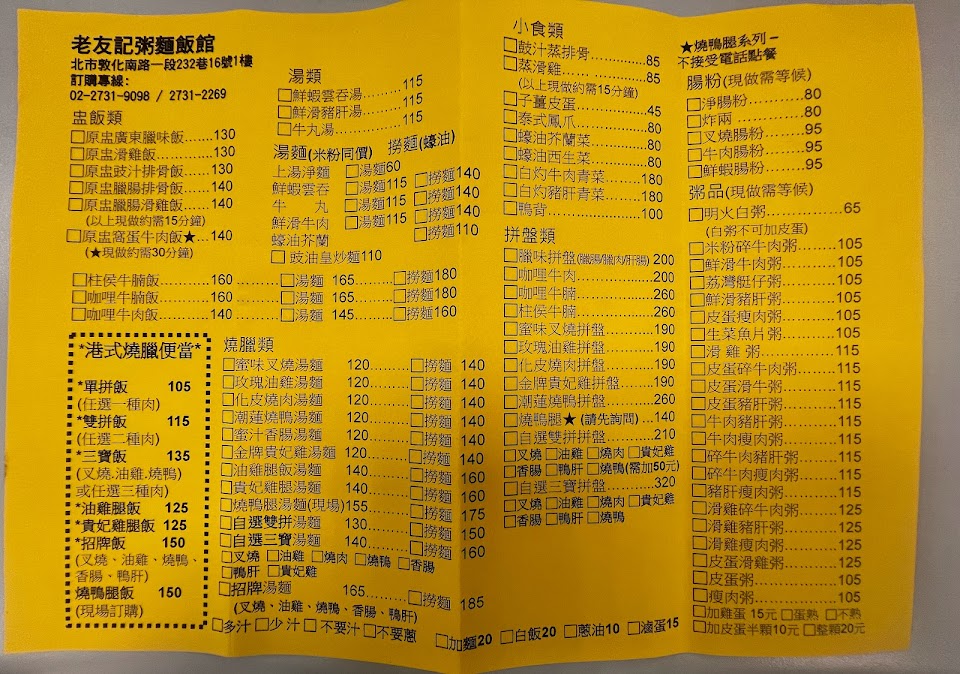 老友記粥麵飯館
北市敦化南路一段232巷16號1樓
訂購專線:
02-2731-9098 / 2731-2269
盅飯類
□原盅廣東臘味飯......130
□原盅滑雞飯............130
□原盅豉汁排骨飯......130
□原盅臘腸排骨飯......140
□原盅臘腸滑雞飯......140
(以上現做約需15分鐘)
□原盅窩蛋牛肉飯★...140
(★現做約需30分鐘)
湯類
□鮮蝦雲吞湯............115
□鮮滑豬肝湯............115
□牛丸湯..................115
湯麵(米粉同價) 撈麵(蠔油)
上湯淨麵 □湯麵60
鮮蝦雲吞 □湯麵115 □撈麵140
牛 丸 □湯麵115 □撈麵140
鮮滑牛肉 □湯麵115 □撈麵140
蠔油芥蘭 □撈麵110
□ 豉油皇炒麵110
□柱侯牛腩飯............160.........□湯麵 165.........□撈麵180
□咖哩牛腩飯............160.........□湯麵 165.........□撈麵180
□咖哩牛肉飯............140.........□湯麵 145.........□撈麵160
*港式燒臘便當*
*單拼飯 105
(任選一種肉)
*雙拼飯 115
(任選二種肉)
*三寶飯 135
(叉燒.油雞.燒鴨)
或任選三種肉)
*油雞腿飯 125
*貴妃雞腿飯 125
*招牌飯 150
(叉燒、油雞、燒鴨、
香腸、鴨肝)
燒鴨腿飯 150
(現場訂購)
燒臘類
□蜜味叉燒湯麵 120.........□撈麵 140
□玫瑰油雞湯麵 120.........□撈麵 140
□化皮燒肉湯麵 120.........□撈麵 140
□潮蓮燒鴨湯麵 120.........□撈麵 140
□蜜汁香腸湯麵 120.........□撈麵 140
□金牌貴妃雞湯麵 120.........□撈麵 140
□油雞腿飯湯麵 140.........□撈麵 160
□貴妃雞腿湯麵 140.........□撈麵 160
□燒鴨腿湯麵(現場)155.........□撈麵 175
□自選雙拼湯麵 130.........□撈麵 150
□自選三寶湯麵 140.........□撈麵 160
□叉燒 □油雞 □燒肉 □燒鴨 □香腸
□鴨肝 □貴妃雞
□招牌湯麵 165.........□撈麵 185
(叉燒、油雞、燒鴨、香腸、鴨肝)
□多汁□少汁 □不要汁□不要蔥 □加麵20 □白飯20 □蔥油10 □滷蛋15
小食類
□鼓汁蒸排骨............85
□蒸滑雞..................85
(以上現做約需15分鐘)
□子薑皮蛋...............45
□泰式鳳爪...............80
□蠔油芥蘭菜............80
□蠔油西生菜............80
□白灼牛肉青菜.........180
□白灼豬肝青菜.........180
□鴨背.....................100
拼盤類
□臘味拼盤(臘腸/臘肉/肝腸) 200
□咖哩牛肉...............200
□咖哩牛腩...............260
□柱侯牛腩...............260
□蜜味叉燒拼盤.........190
□玫瑰油雞拼盤.........190
□化皮燒肉拼盤.........190
□金牌貴妃雞拼盤......190
□潮蓮燒鴨拼盤.........260
□燒鴨腿★ (請先詢問) ...140
□自選雙拼拼盤.........210
□叉燒 □油雞 □燒肉 □貴妃雞
□香腸 □鴨肝 □燒鴨(需加50元)
□自選三寶拼盤.........320
□叉燒 □油雞 □燒肉 □貴妃雞
□香腸 □鴨肝 □燒鴨
★燒鴨腿系列-
不接受電話點餐
腸粉(現做需等候)
□淨腸粉..................80
□炸兩 ..................80
□叉燒腸粉...............95
□牛肉腸粉...............95
□鮮蝦腸粉...............95
粥品(現做需等候)
□明火白粥...............65
(白粥不可加皮蛋)
□米粉碎牛肉粥.........105
□鮮滑牛肉粥............105
□荔灣艇仔粥............105
□鮮滑豬肝粥............105
□皮蛋瘦肉粥............105
□生菜魚片粥............105
□滑 雞 粥...............115
□皮蛋碎牛肉粥.........115
□皮蛋滑牛粥............115
□皮蛋豬肝粥............115
□牛肉豬肝粥............115
□牛肉瘦肉粥............115
□碎牛肉豬肝粥.........115
□碎牛肉瘦肉粥.........115
□豬肝瘦肉粥............115
□滑雞碎牛肉粥.........125
□滑雞豬肝粥............125
□滑雞瘦肉粥............125
□皮蛋滑雞粥............125
□皮蛋粥..................105
□瘦肉粥..................105
□加雞蛋 15元 □蛋熟 □不熟
□加皮蛋半顆10元 □整顆20元